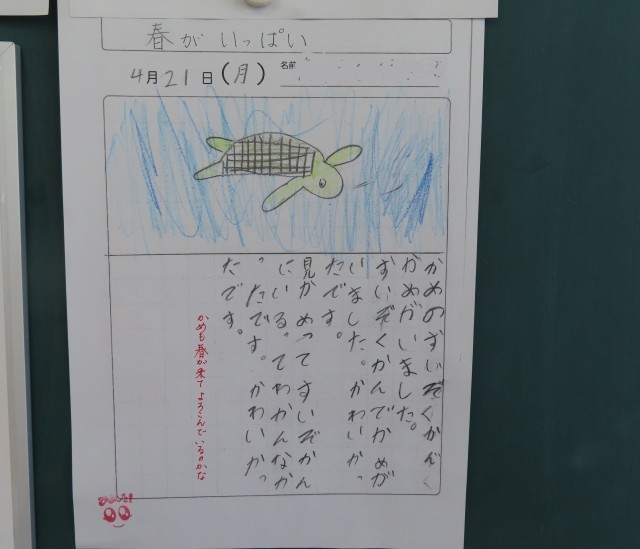 春がいっぱい
4月21日(月)
名前
かめのすいぞくかんく
かめがいました。
すいぞくかんでかめが
いました。かわいかっ
たです。
見かめってすいぞかん
にいる。てわかんなか
ったです。かわいかっ
たです。
かめも春が来てよろこんでいるのかな